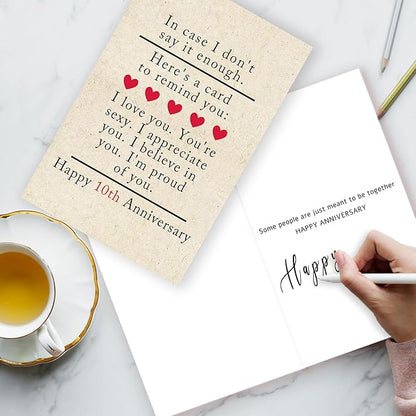 In case I don't
say it enough.
Here's a card
to remind you:
I love you. You're
sexy. I appreciate
you. I believe in
you. I'm proud
of you.
Happy 10th Anniversary
Some people are just meant to be together
HAPPY ANNIVERSARY
Happy